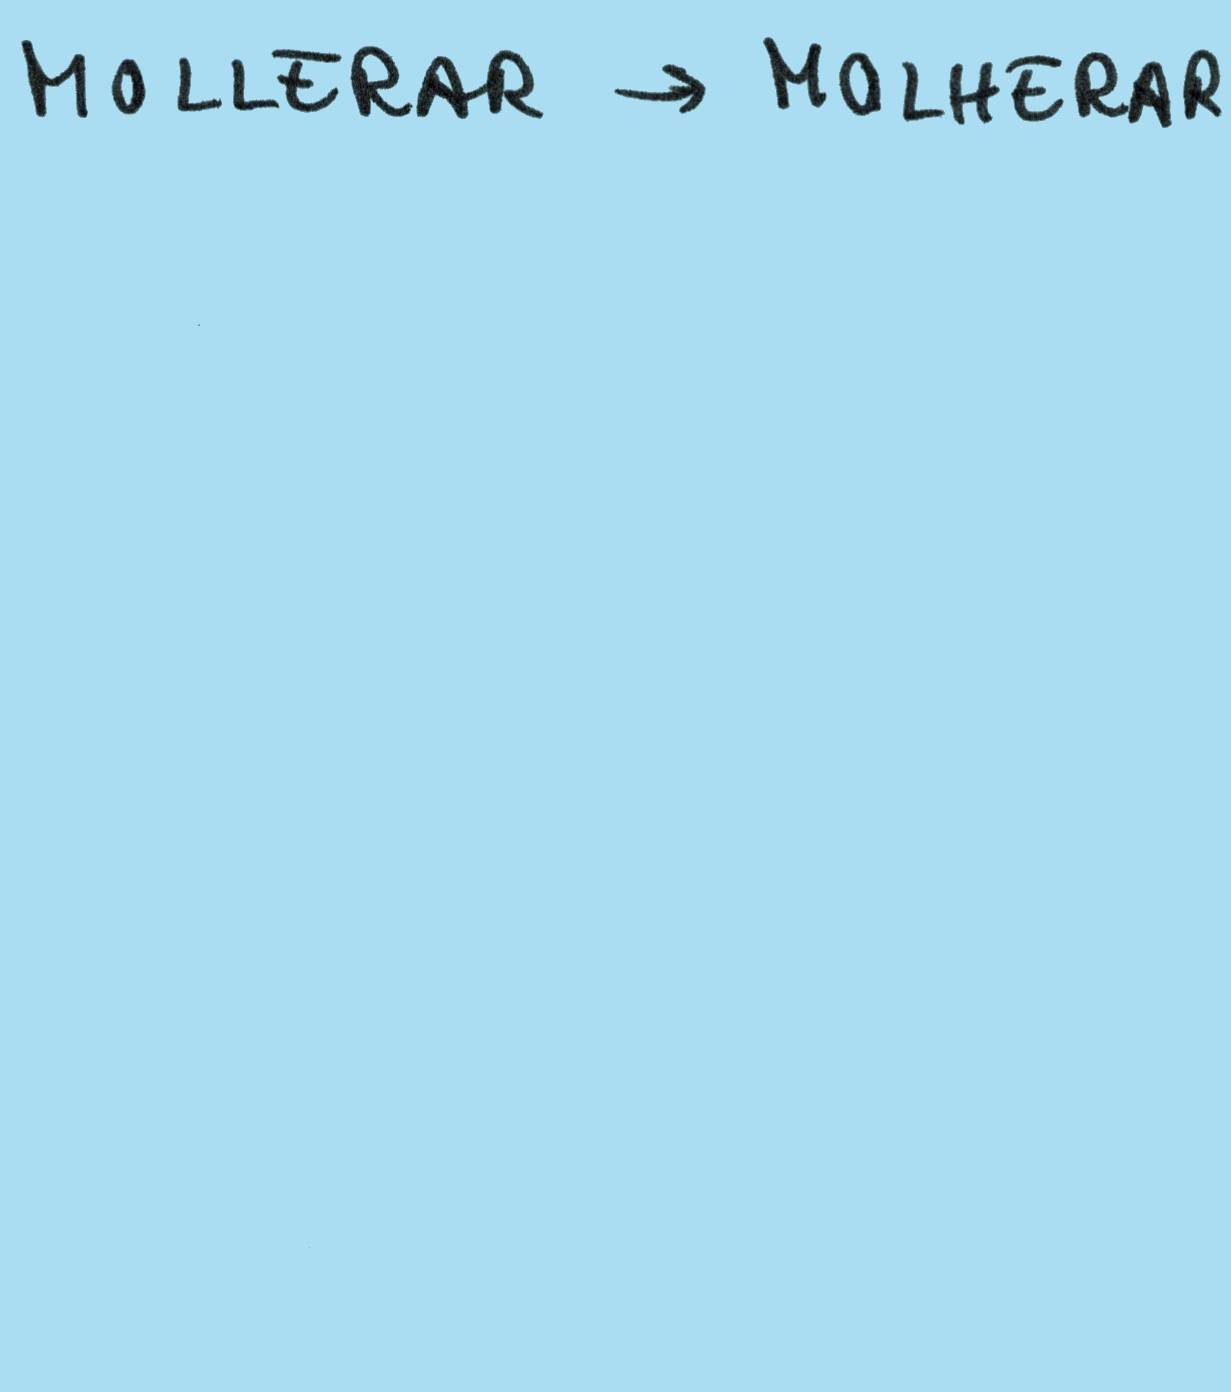 MOLLERAR → MOLHERAR